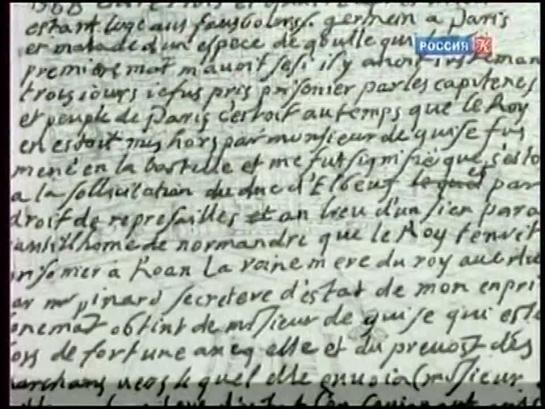 1588 entre trois et quatre
estant logé aus fausbourgs s. germein a Paris
et malade d'un espece de goutte qui
premieremāt m'avoit sesi il y avoit iustemant
trois iours ie fus pris prisonier par les capitenes
et peuple de Paris c'estoit au temps que le Roy
en estoit mis hors par monsieur de guise fus
mené en la bastille et me fut signifié que c'esto
a la sollicitation du duc d'Elbeuf et par
droit de represailles au lieu d'un sien para
iantilhome de normandie que le Roy tenoit
prisonier a Roan La roine mere du roy avertie
par mr pinard secretere d'estat de mon enpri
sonemāt obtint de mōsieur de guise qui esto
lors de fortune aveq elle et du prevost des
marchans vers lequel elle envoia (mōsieur
РОССИЯ К